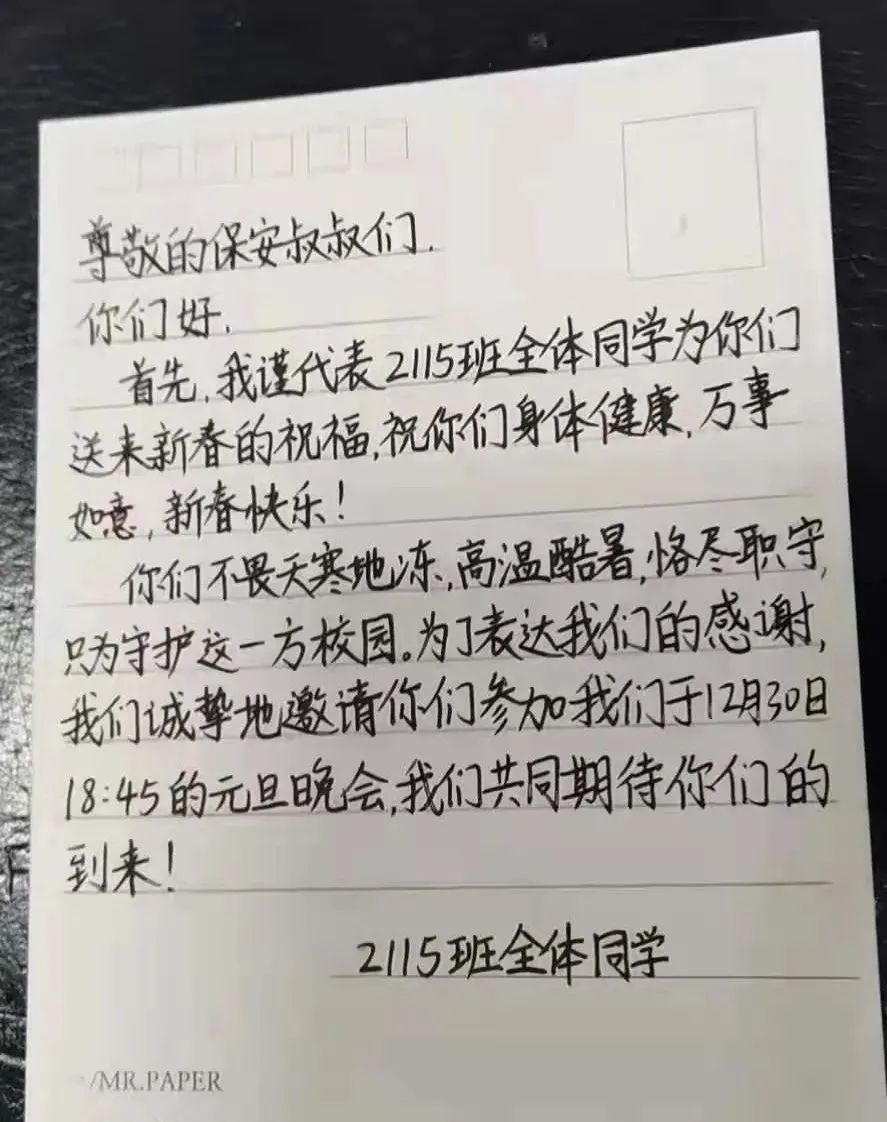 尊敬的保安叔叔们.
你们好.
首先,我谨代表2115班全体同学为你们
送来新春的祝福,祝你们身体健康,万事
如意,新春快乐!
你们不畏天寒地冻,高温酷暑,恪尽职守,
只为守护这一方校园。为了表达我们的感谢,
我们诚挚地邀请你们参加我们于12月30日
18:45的元旦晚会,我们共同期待你们的
到来!
2115班全体同学
/MR.PAPER